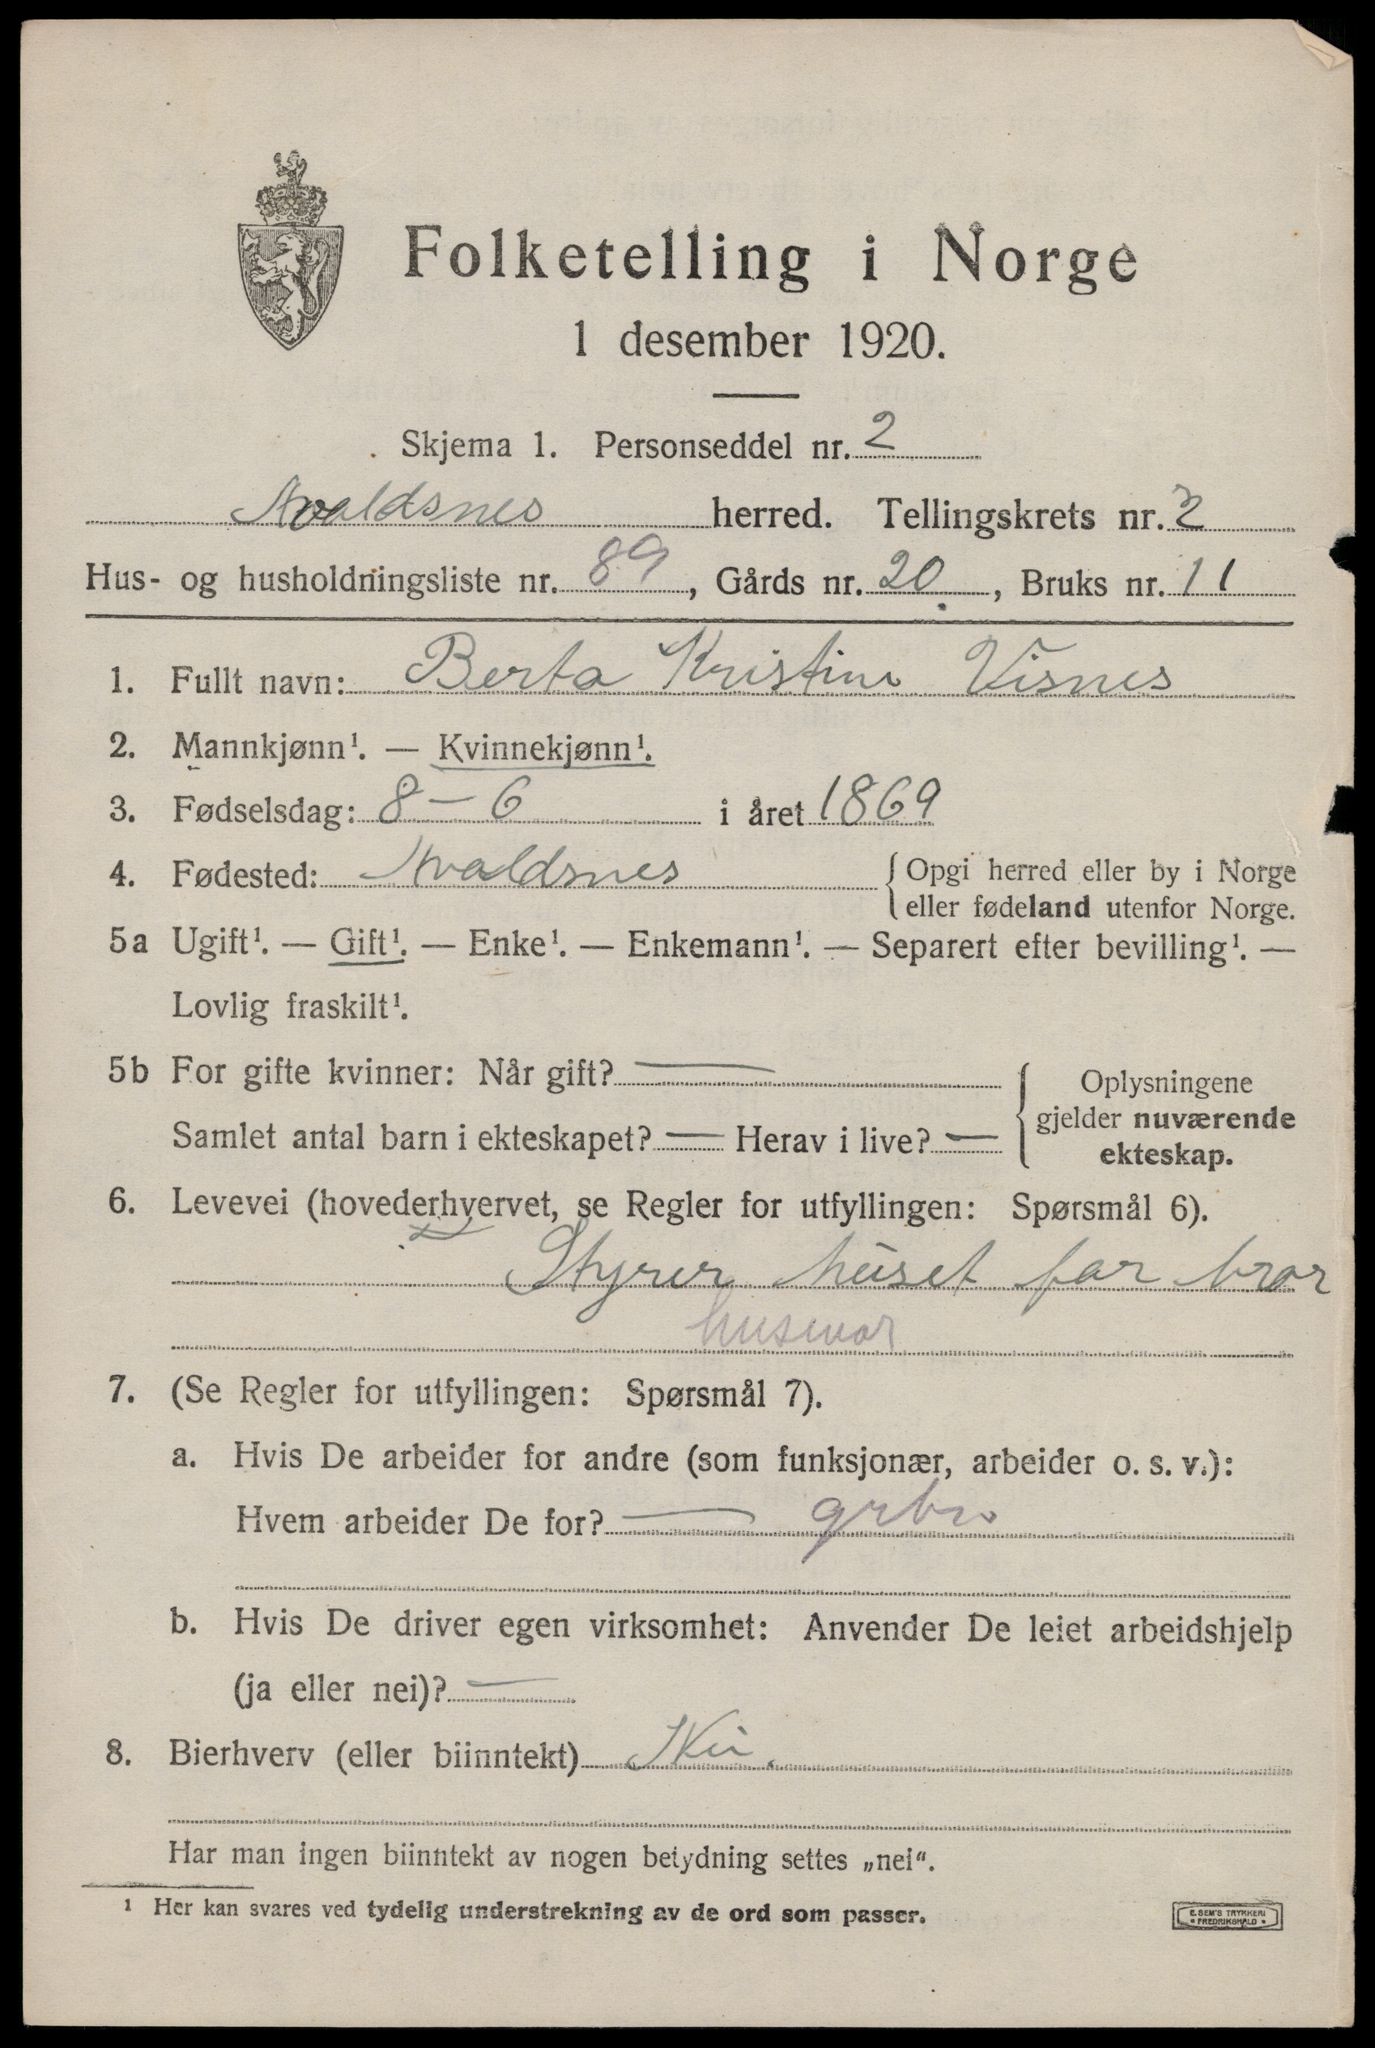 Folketelling i Norge
1 desember 1920.
Skjema 1. Personseddel nr. 2
Avaldsnes herred. Tellingskrets nr. 2
Hus- og husholdningsliste nr. 89, Gårds nr. 20, Bruks nr. 11
1. Fullt navn: Berta Kristine Visnes
2. Mannkjønn¹. — Kvinnekjønn¹.
3. Fødselsdag: 8 – 6 i året 1869
4. Fødested: Avaldsnes { Opgi herred eller by i Norge
eller fødeland utenfor Norge.
5a Ugift¹. — Gift¹. — Enke¹. — Enkemann¹. — Separert efter bevilling¹. —
Lovlig fraskilt¹.
5b For gifte kvinner: Når gift? —
Samlet antal barn i ekteskapet? — Herav i live? —
{ Oplysningene
gjelder nuværende
ekteskap.
6. Levevei (hovederhvervet, se Regler for utfyllingen: Spørsmål 6).
Styrer huset for bror
husmor
7. (Se Regler for utfyllingen: Spørsmål 7).
a. Hvis De arbeider for andre (som funksjonær, arbeider o. s. v.):
Hvem arbeider De for? — grbr
b. Hvis De driver egen virksomhet: Anvender De leiet arbeidshjelp
(ja eller nei)? —
8. Bierhverv (eller biinntekt)
Har man ingen biinntekt av nogen betydning settes „nei“.
¹ Her kan svares ved tydelig understrekning av de ord som passer.
E. SEM'S TRYKKERI
• FREDRIKSHALD •